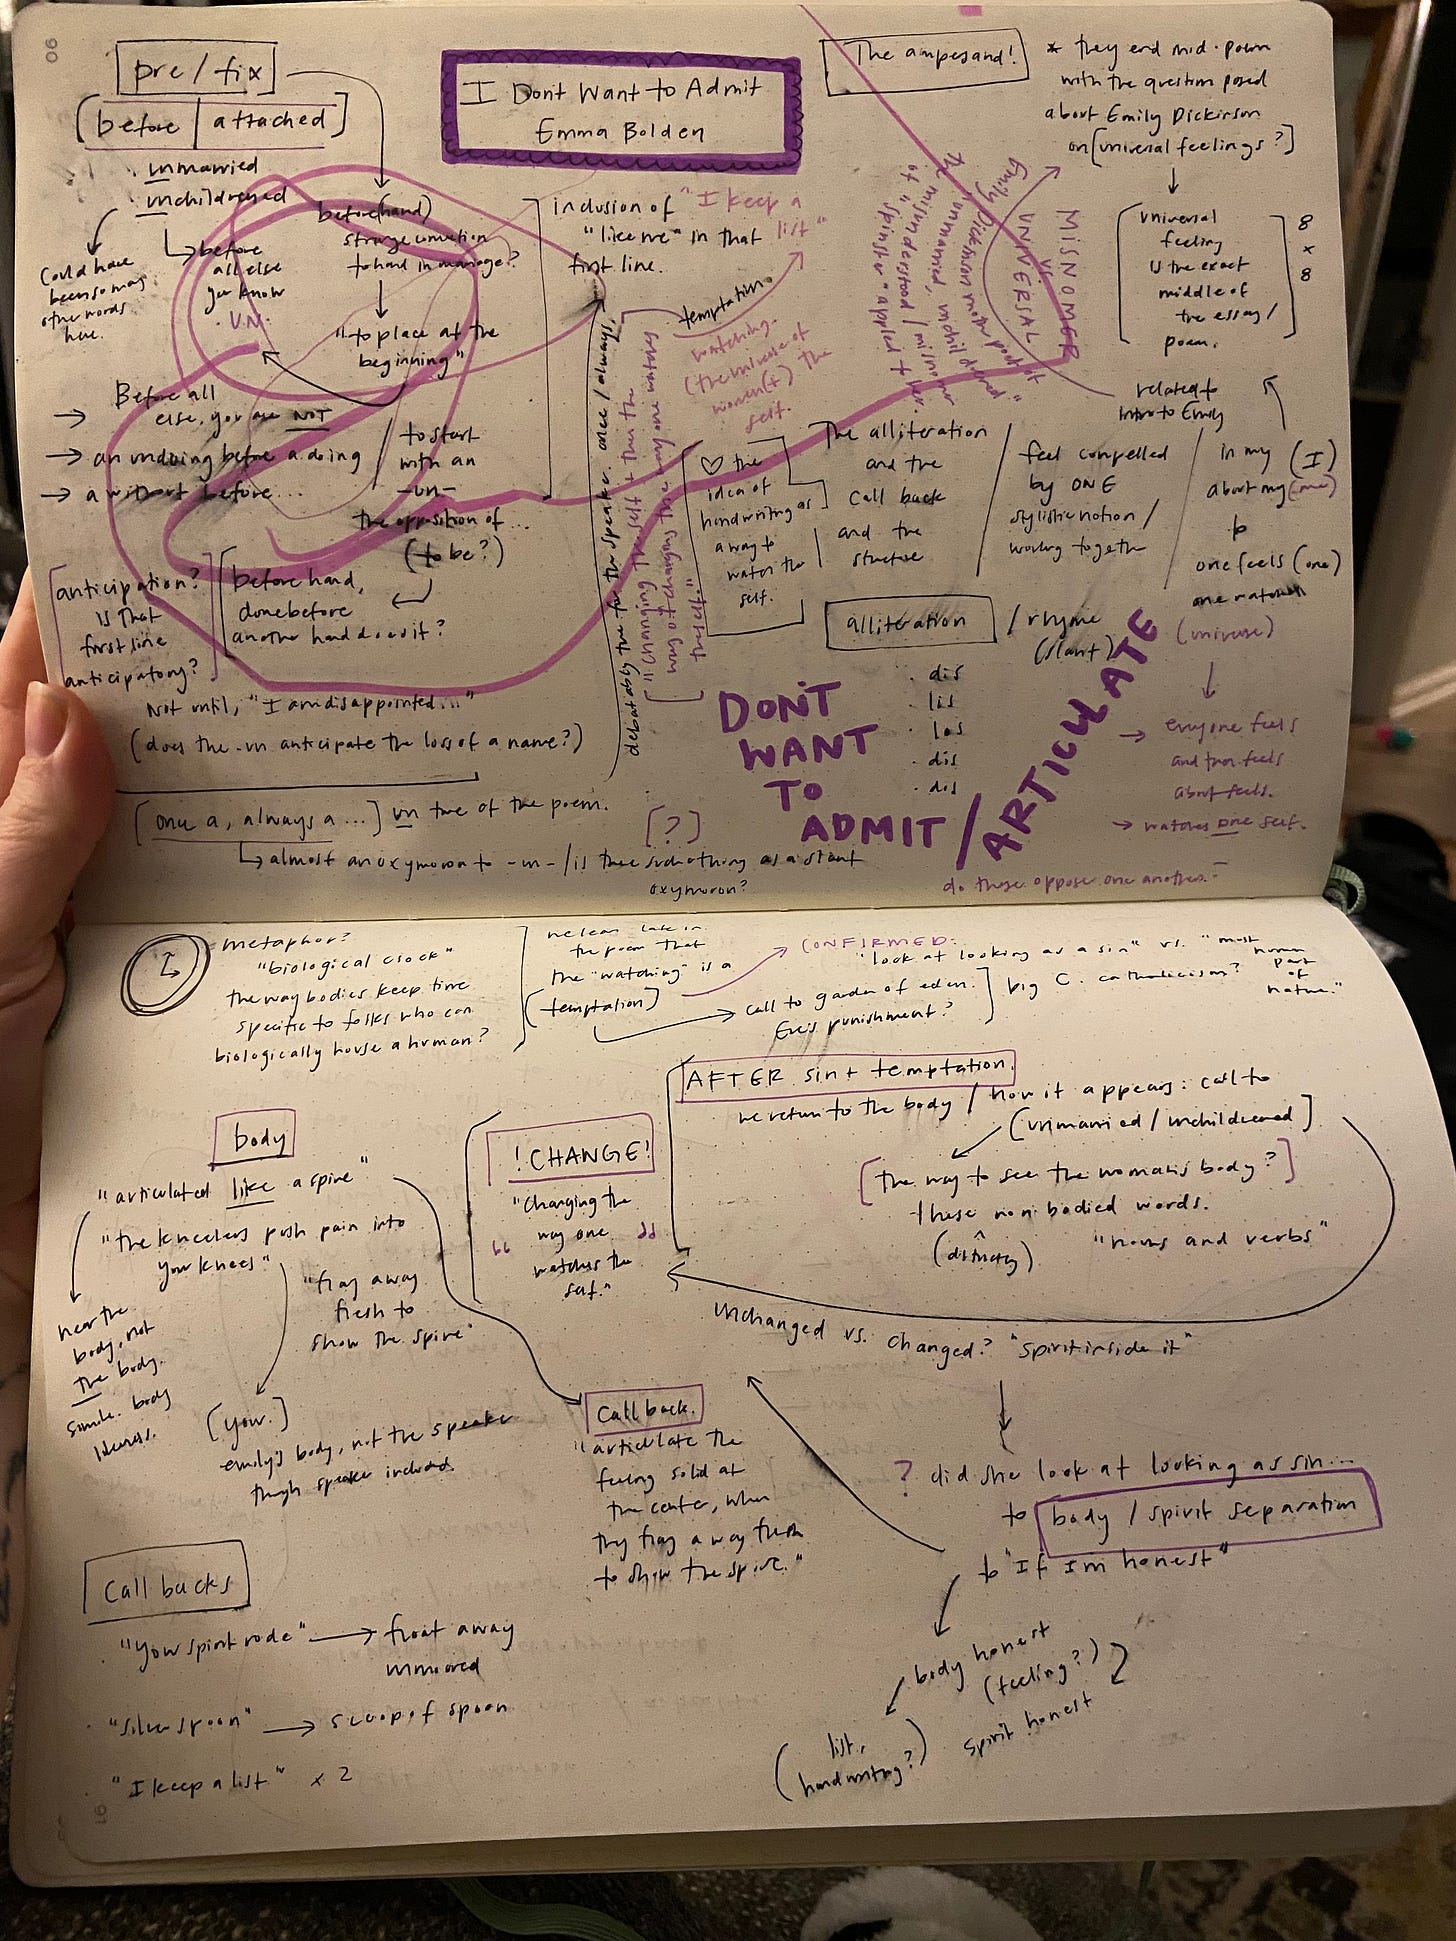 90
pre / fix
[before | attached]
unmarried
unchildressed
could have
been so many
other words
here.
before
all else
you know
UN.
before(hand)
strange connection
to hand in marriage?
"to place at the
beginning"
→ Before all
else, you are NOT
→ an undoing before a doing
→ a without before...
to start
with an
-un-
the opposition of...
(to be?)
[anticipation?
Is that
first line
anticipatory?
before hand,
done before
another hand does it?
Not until, "I am disappointed..."
(does the -un anticipate the loss of a name?)
[once a, always a...] un true of the poem.
↳ almost an oxymoron to -un- / is there such a thing as a slant
oxymoron?
[?]
I Dont Want to Admit
Emma Bolden
inclusion of
"like me" in that
first line.
"I keep a
list"
temptation.
watching.
(the universe of
women(+) the
self.
debatably true for the speaker. once / always.
["changing the self + then the
way of changing the way one watches
the self."]
♡ the
idea of
handwriting as
a way to
water the
self.
The ampesand!
* they end mid-poem
with the question posed
about Emily Dickinson
on [universal feelings?]
↓
universal
feeling
is the exact
middle of
the essay /
poem.
8
x
8
MISNOMER
vs
UNIVERSAL
Emily Dickinson mother poet of
the unmarried, unchildressed"
misunderstood / misnomer
of "spinster" applied to her.
related to
intro to Emily
The alliteration
and the
call back
and the
structure
feel compelled
by ONE
stylistic notion /
working together
in my (I)
about my (one)
to
one feels (one)
one watches
(universe)
↓
→ everyone feels
and then feels
about feels.
→ watches one self.
alliteration / rhyme
(slant)
. dis
. lis
. los
. dis
. dis
DON'T
WANT
TO
ADMIT / ARTICULATE
do these oppose one another.
metaphor?
"biological clock"
the way bodies keep time
specific to folks who can
biologically house a human?
we learn late in
the poem that
the "watching" is a
(temptation)
CONFIRMED:
"look at looking as a sin" vs. "most
human
part
of
nature."
call to garden of eden.
Eve's punishment?
big C. catholicism?
AFTER sin + temptation.
we return to the body / how it appears: call to
(unmarried / unchildressed)
[the way to see the woman's body?]
these non bodied words.
(distinctly)
"nouns and verbs"
body
"articulated like a spine"
"the kneelers push pain into
your knees"
near the
body, not
the body.
simile. body
likeness.
"fray away
flesh to
show the spine"
[your.]
emily's body, not the speaker
though speaker included.
!CHANGE!
"changing the
way one
watches the
self."
unchanged vs. changed? "spirit inside it"
Call back.
"articulate the
feeling solid at
the center, when
they fray away flesh
to show the spine."
? did she look at looking as sin...
to body / spirit separation
to "If I'm honest"
body honest
(feeling?)
spirit honest
(list,
handwriting?)
Call backs
. "your spirit rode" → float away
unmoored
. "silver spoon" → scoop of spoon
. "I keep a list" x 2
91